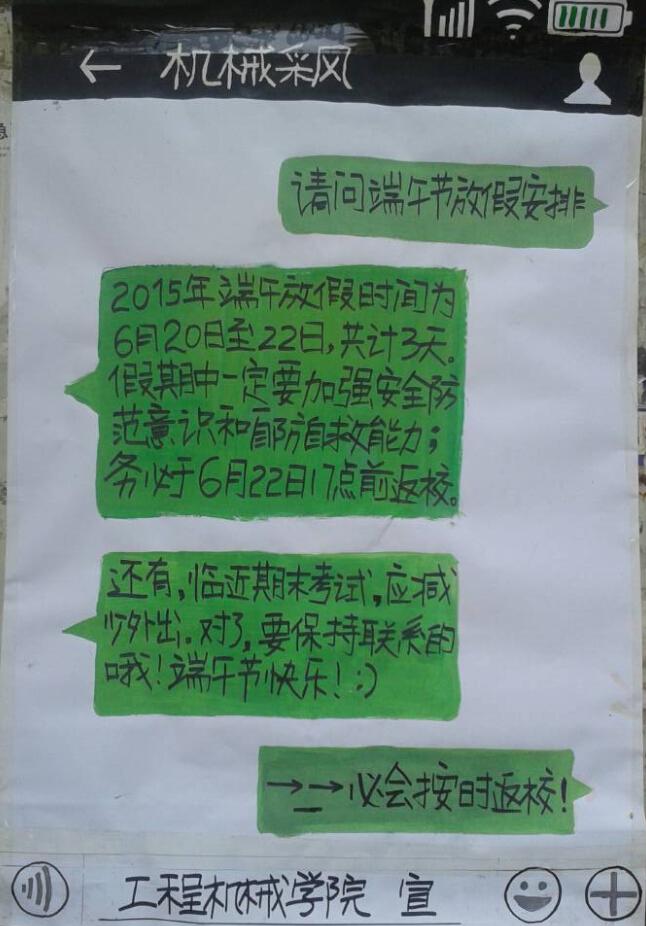 ← 机械采风
请问端午节放假安排
2015年端午放假时间为
6月20日至22日,共计3天。
假期中一定要加强安全防
范意识和自防自救能力;
务必于6月22日17点前返校。
还有,临近期末考试,应减
少外出。对了,要保持联系的
哦!端午节快乐!:)
→_→必会按时返校!
工程机械学院 宣